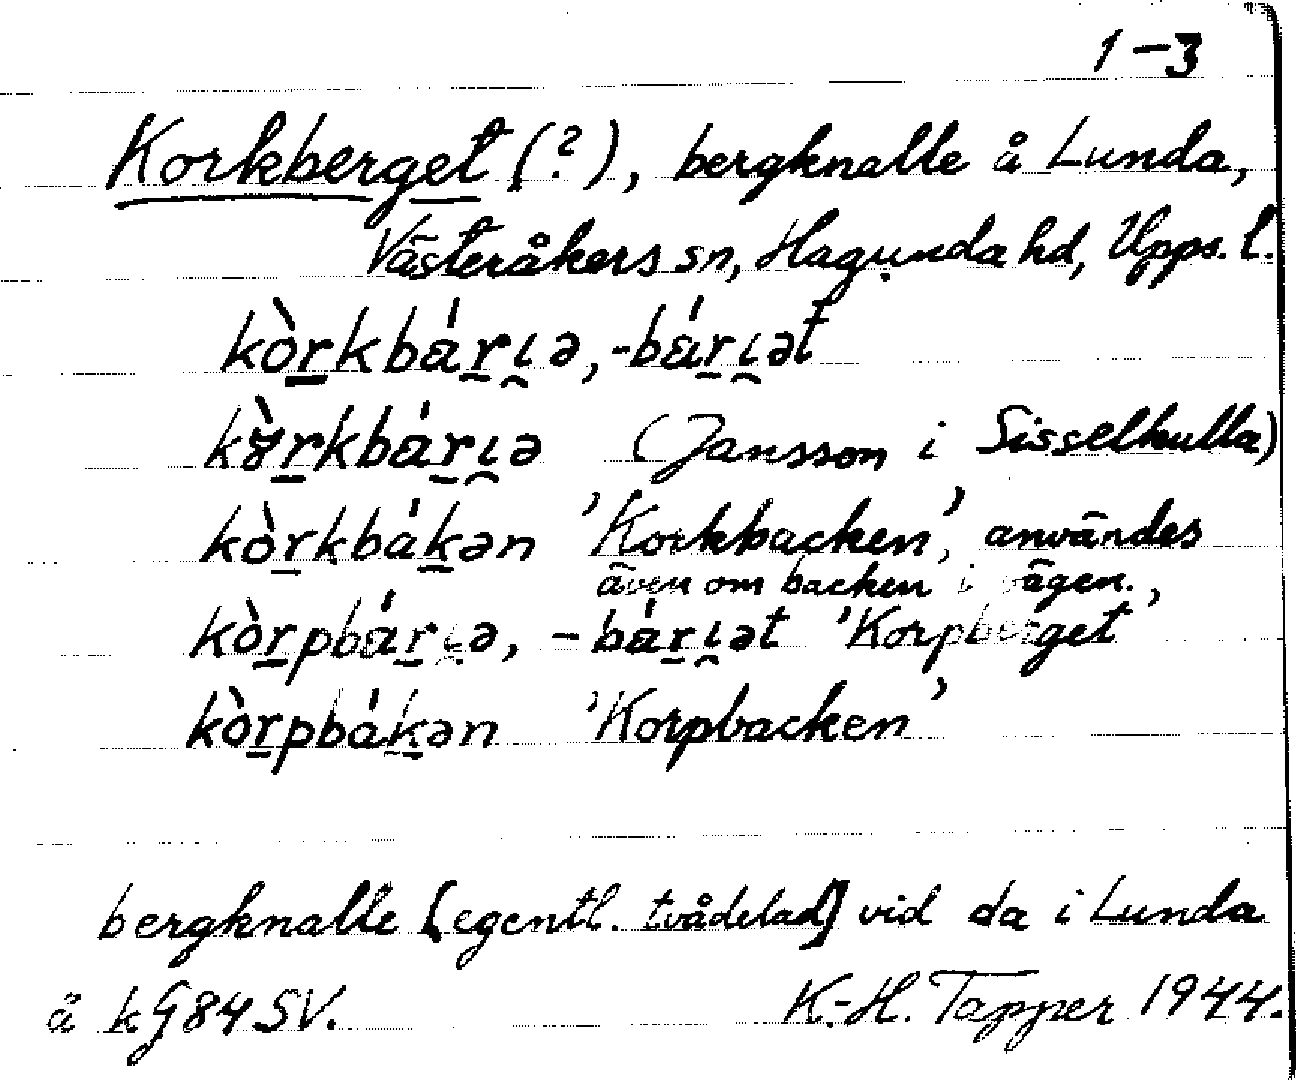 1-3
Korkberget (?), bergknalle å Lunda,
Västeråkers sn, Hagunda hd, Upps. l.
kòr̲kbár̲ı̯ə, -bár̲ı̯ət
kɣ̀r̲kbár̲ı̯ə (Jansson i Sisselhulla)
kòr̲kbák̲ən 'Korkbacken', användes
även om backen i vägen.
kòr̲pbár̲ı̯ə, -bár̲ı̯ət 'Korpberget'
kòr̲pbák̲ən 'Korpbacken'
bergknalle [egentl. tvådelad] vid da i Lunda
å kG84SV. K.-H. Tapper 1944.